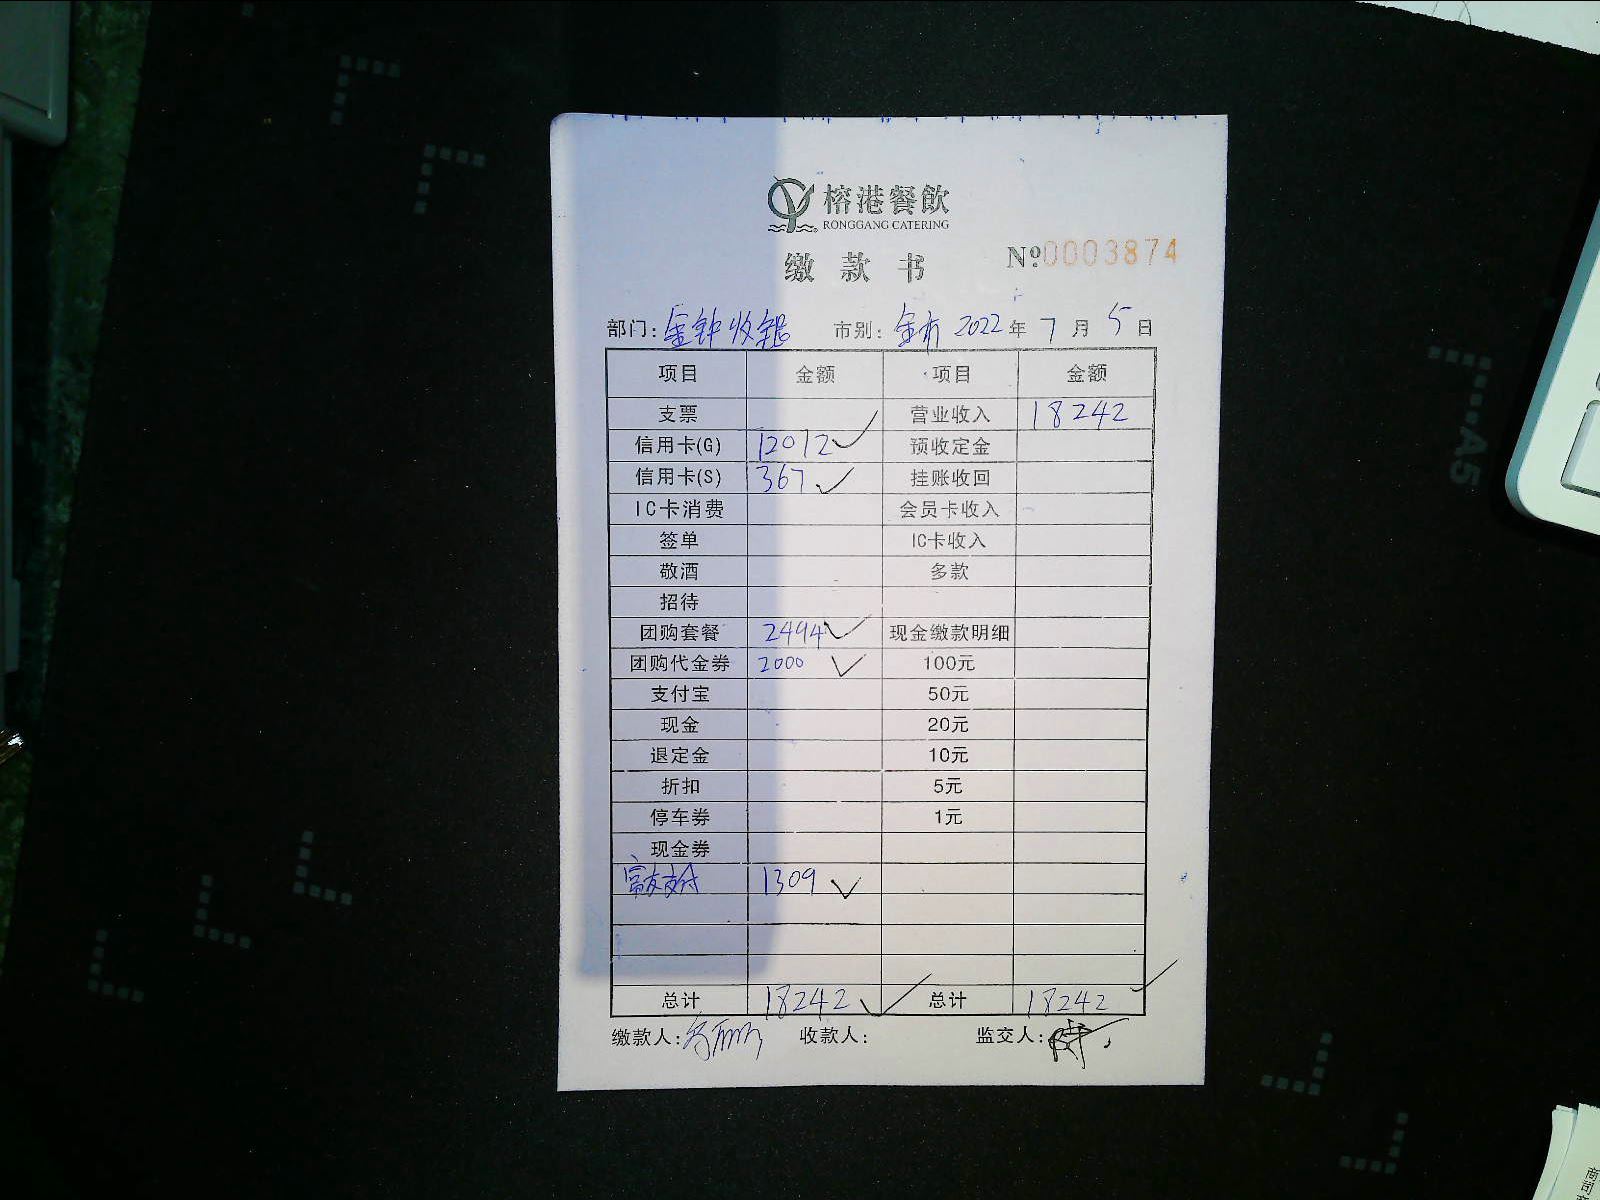 榕港餐飲
RONGGANG CATERING
缴款书 Nº:0003874
部门:金钟收银 市别:全市 2022年7月5日
项目 金额 项目 金额
支票 营业收入 18242
信用卡(G) 12012 预收定金
信用卡(S) 367 挂账收回
IC卡消费 会员卡收入
签单 IC卡收入
敬酒 多款
招待
团购套餐 2494 现金缴款明细
团购代金券 2000 100元
支付宝 50元
现金 20元
退定金 10元
折扣 5元
停车券 1元
现金券
富友支付 1309
总计 18242 总计 18242
缴款人: 收款人: 监交人:
A5